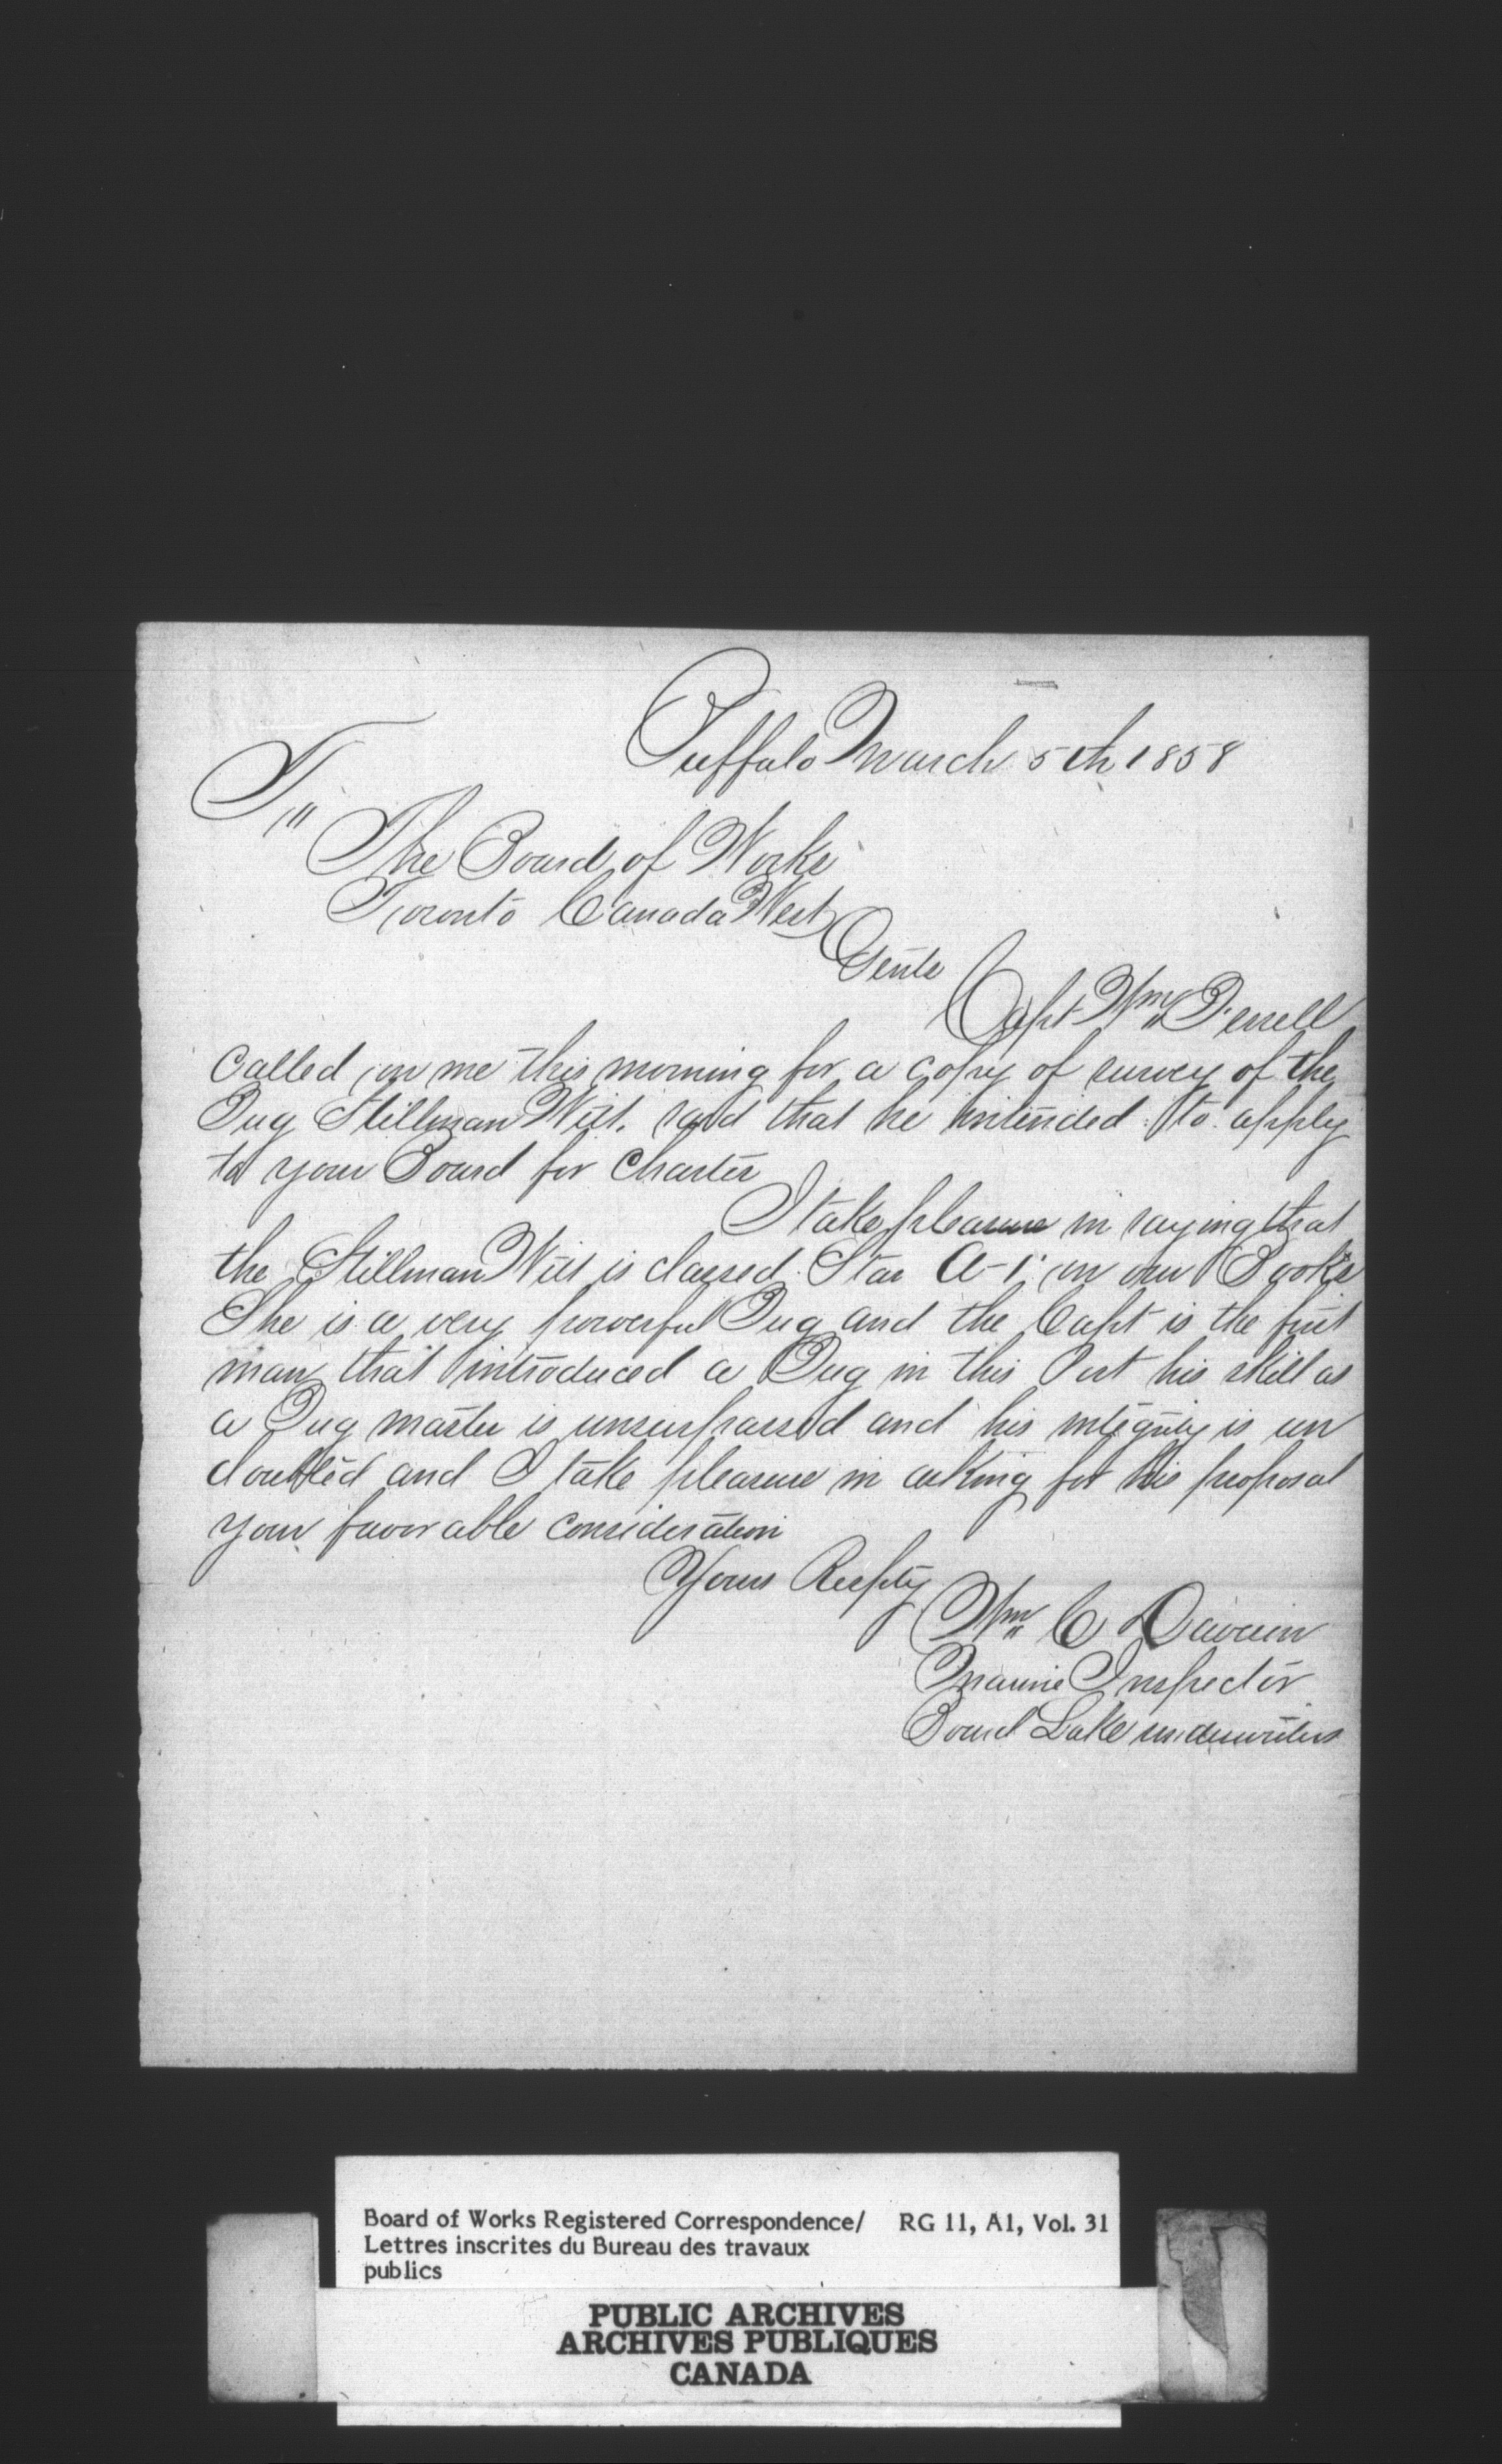 Buffalo March 5th 1858
To
The Board of Works
Toronto Canada West
Gents
Capt Wm
Called on me this morning for a copy of survey of the
Tug Stillman Witt. said that he intended to apply
to your Board for Charter
I take pleasure in saying that
the Stillman Witt is classed Star A-1 on our Books
She is a very powerful Tug and the Capt is the first
man that introduced a Tug in this Port his skill as
a Tug master is unsurpassed and his integrity is un
doubted and I take pleasure in asking for his proposal
your favorable consideration
Yours Respty
Wm C
Marine Inspector
Board Lake underwriters
Board of Works Registered Correspondence/ RG 11, A1, Vol. 31
Lettres inscrites du Bureau des travaux
publics
PUBLIC ARCHIVES
ARCHIVES PUBLIQUES
CANADA